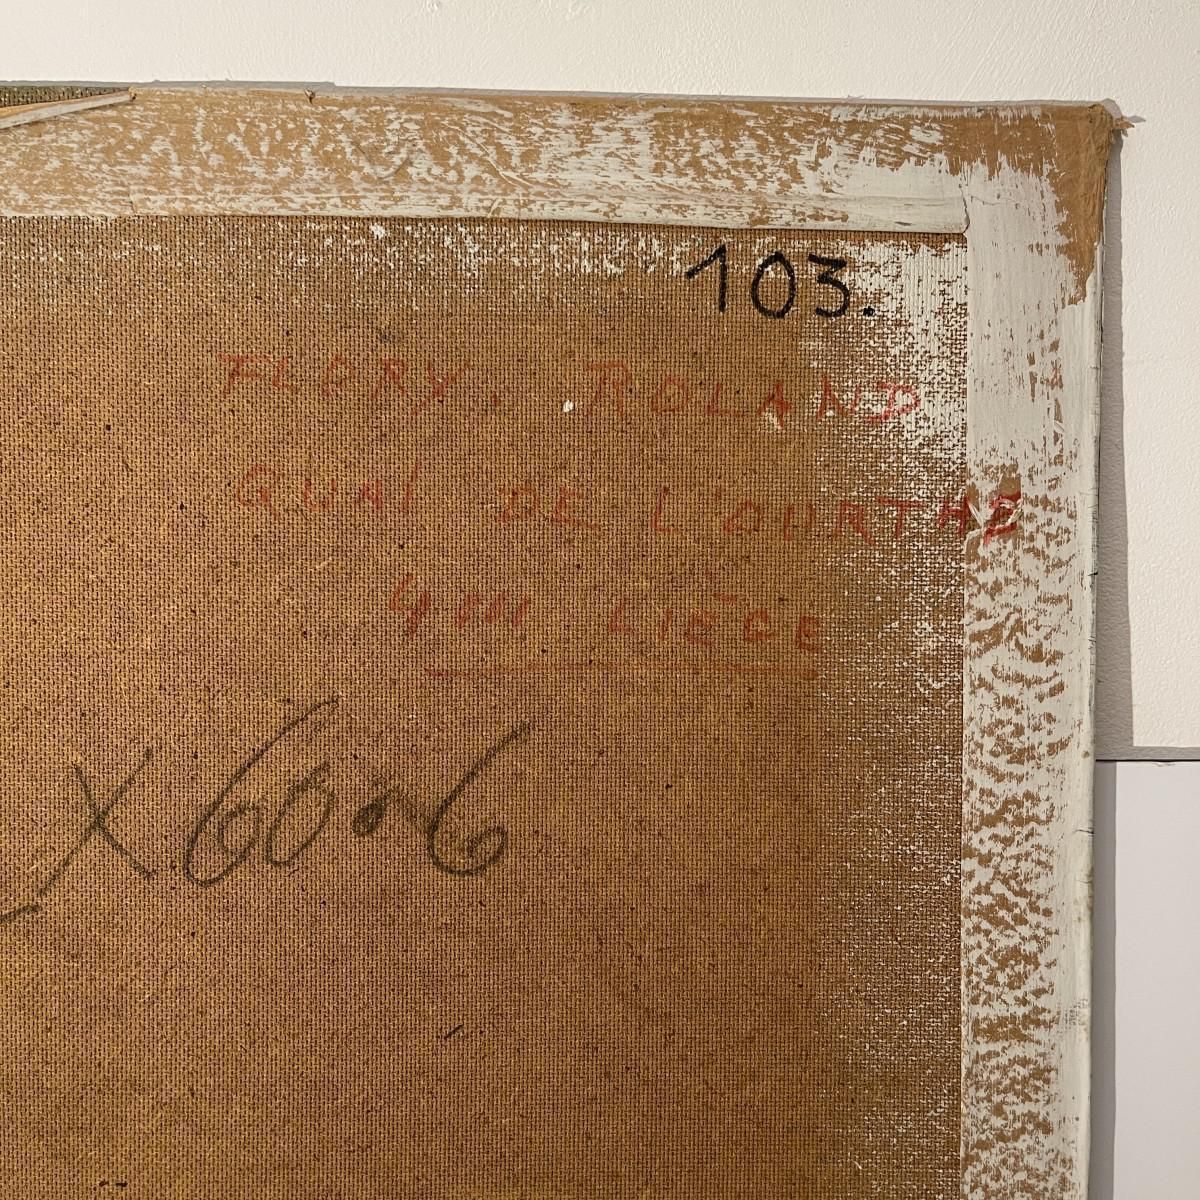 103.
FLORY. ROLAND
QUAI DE L'OURTHE
LIÈGE
X 60